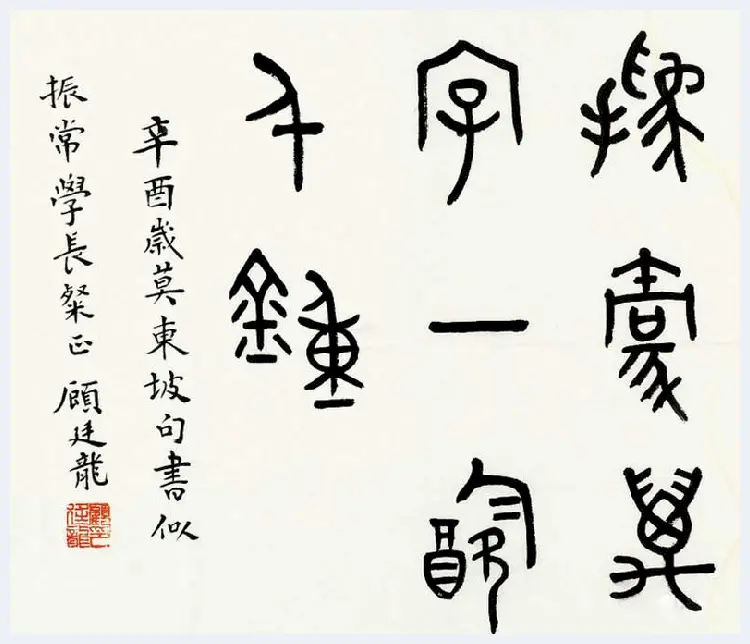 揮豪萬
字一飲
千鍾
辛酉歲莫東坡句書似
振常學長粲正 顧廷龍
顧廷龍印